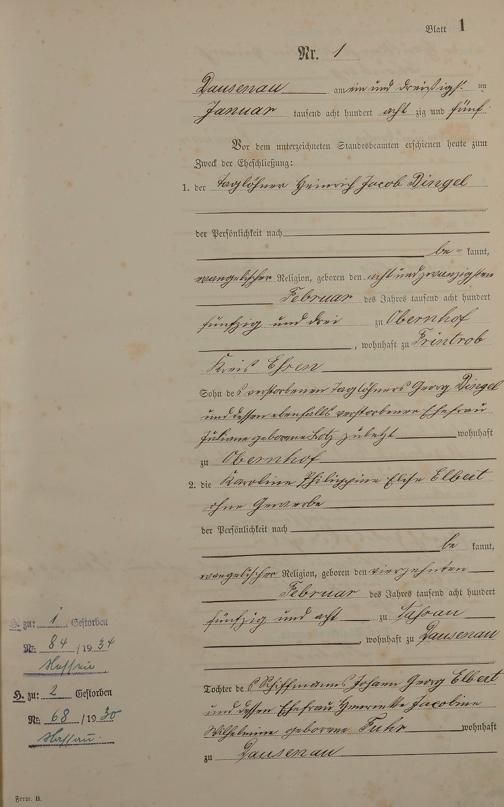 Blatt 1
Nr. 1
Dausenau am ein und dreißigst en
Januar tausend acht hundert acht zig und fünf
Vor dem unterzeichneten Standesbeamten erschienen heute zum
Zweck der Eheschließung:
1. der Taglöhner Heinrich Jacob Dingel
der Persönlichkeit nach
be= kannt,
evangelischer Religion, geboren den acht und zwanzigsten
Februar des Jahres tausend acht hundert
fünfzig und drei zu Obernhof
, wohnhaft zu Frintrob
Kreis Essen
Sohn des verstorbenen Taglöhners Georg Dingel
und dessen ebenfalls verstorbener Ehefrau
Juliane geborene Lotz zuletzt wohnhaft
zu Obernhof
2. die Karoline Philippine Elise Elbert
ohne Gewerbe
der Persönlichkeit nach
be kannt,
evangelischer Religion, geboren den vierzehnten
Februar des Jahres tausend acht hundert
fünfzig und acht zu Nassau
, wohnhaft zu Dausenau
Tochter des Schiffmanns Johann Georg Elbert
und dessen Ehefrau Henriette Jacobine
Wilhelmine geborene Fuhr wohnhaft
zu Dausenau
H. zu: 1 Gestorben
No. 84 / 19 34
Nassau
H. zu: 2 Gestorben
No. 68 / 19 30
Nassau
Form. B.